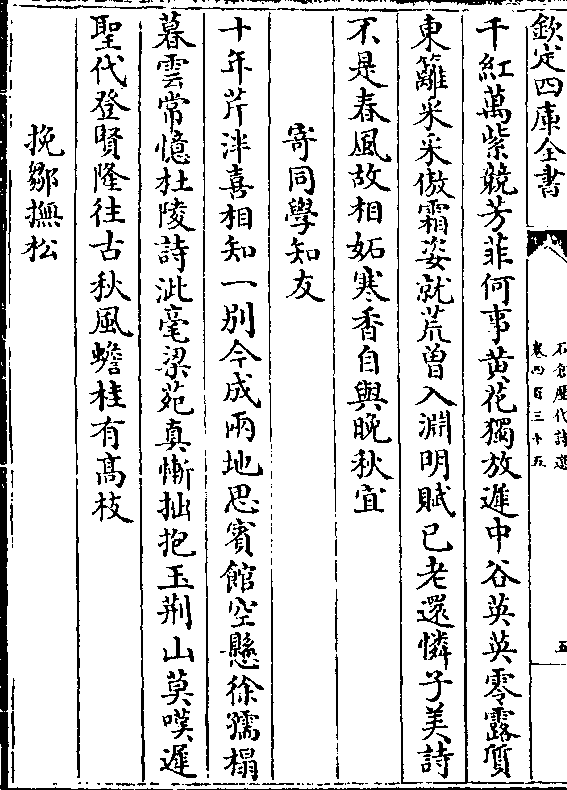 欽定四庫全書
石倉歷代詩選
卷四百三十五
五
千紅萬紫競芳菲何事黄花獨放遲中谷英英零露質
東籬采采傲霜姿就荒曽入淵明賦已老還憐子美詩
不是春風故相妬寒香自與晚秋宜
寄同學知友
十年芹泮喜相知一别今成兩地思賓館空懸徐孺榻
暮雲常憶杜陵詩泚毫梁苑真慚拙抱玉荆山莫嘆遲
聖代登賢隆往古秋風蟾桂有髙枝
挽鄒撫松